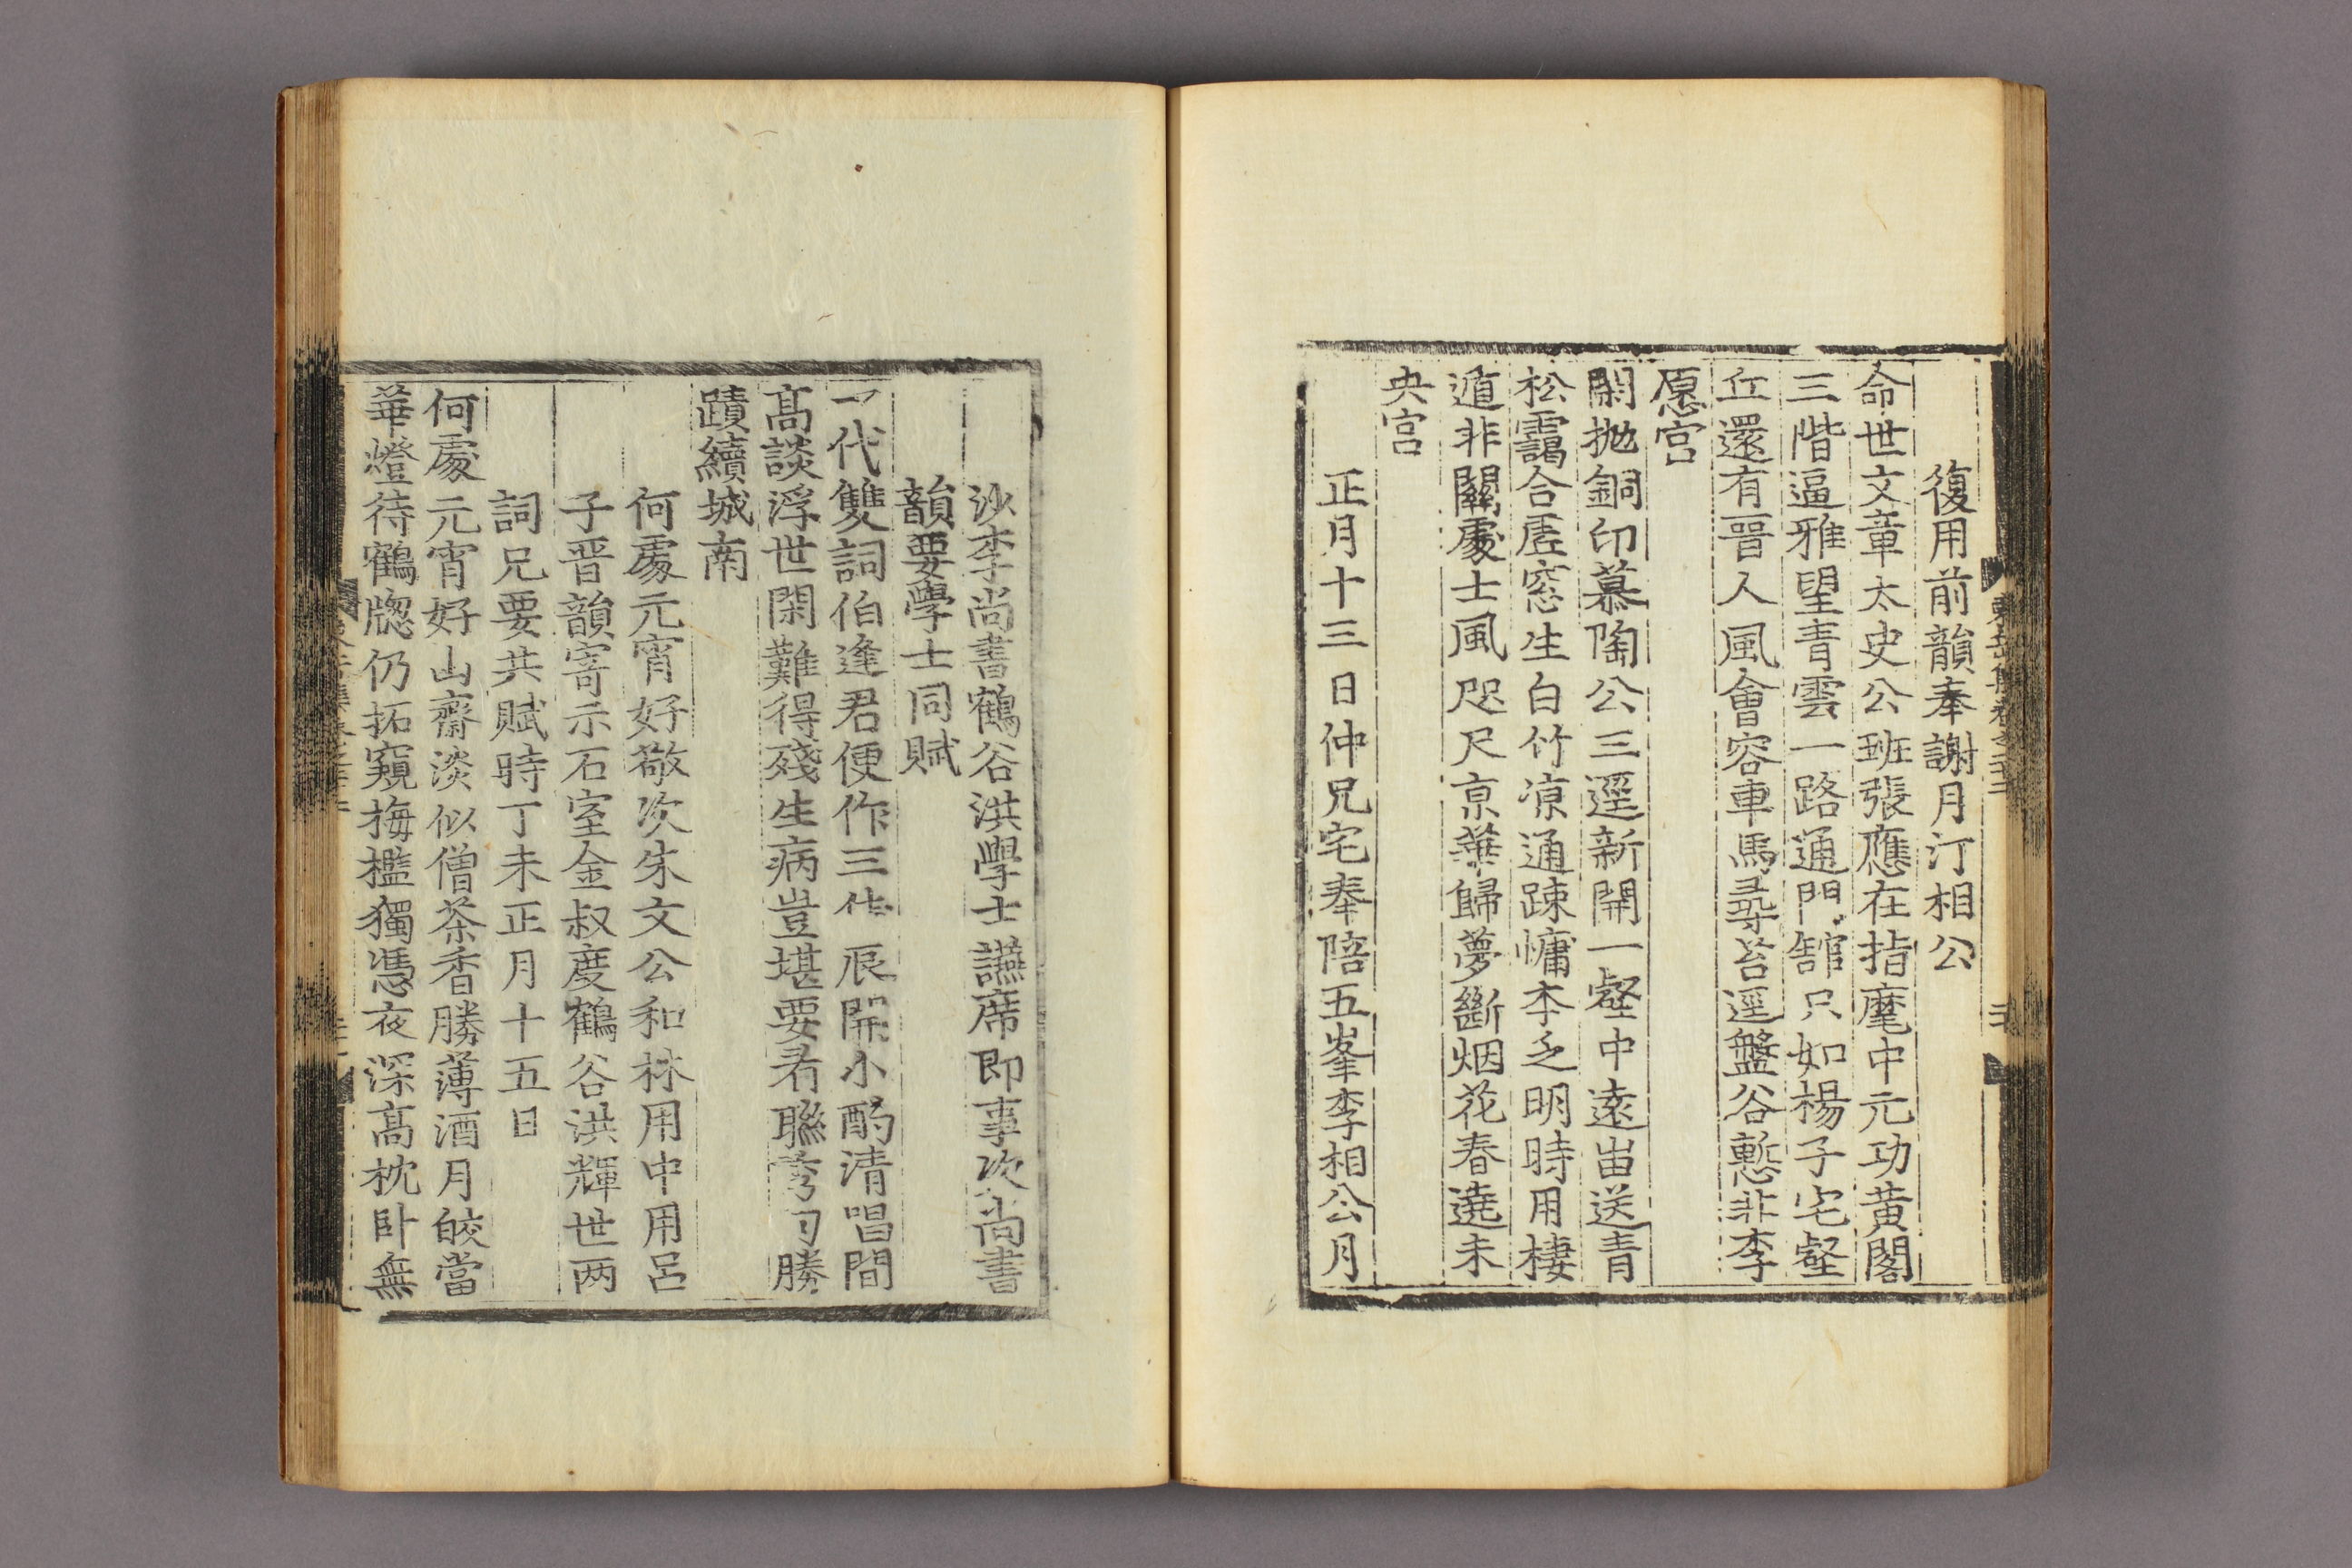 復用前韻奉謝月汀相公
命世文章太史公班張應在指麾中元功黃閣
三階逼雅望靑雲一路通門舘只如楊子宅壑
丘還有晉人風會容車馬尋苔逕盤谷慙非李
愿宮
閑抛銅印慕陶公三逕新開一壑中遠岫送青
松靄合虛窓生白竹凉通踈慵李乏明時用棲
遁非關處士風咫尺京華歸夢斷烟花春遶未
央宮
正月十三日仲兄宅奉陪五峯李相公月
沙李尚書鶴谷洪學士讌席即事次尚書
韻要學士同賦
一代雙詞伯逢君便作三 辰開小酌清唱間
高談浮世閑難得殘生病豈堪要看聯 勝
蹟續城南
何處元宵好敬次朱文公和林用中用呂
子晋韻寄示石室金叔度鶴谷洪輝世两
詞兄要共賦時丁未正月十五日
何處元宵好山齋淡似僧茶香勝薄酒月皎當
華燈待鶴牕仍拓窺梅檻獨憑夜深高枕卧無